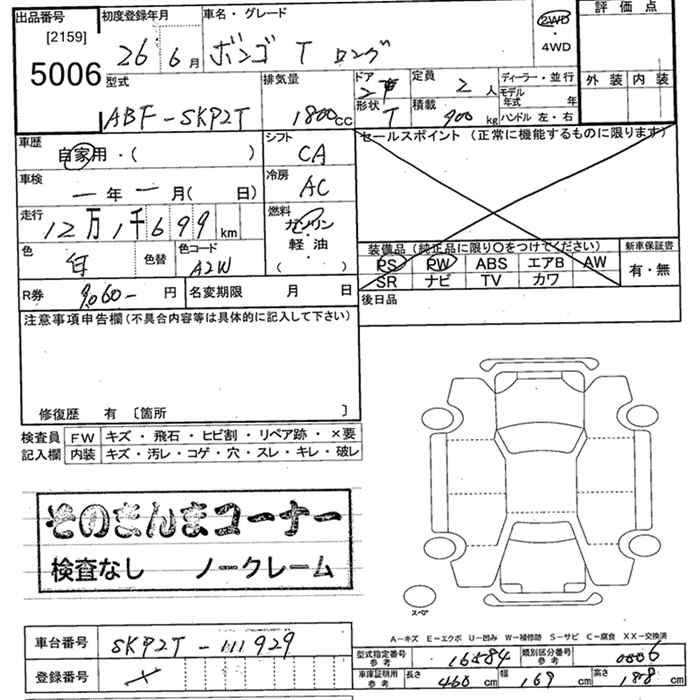 出品番号 初度登録年月 車名・グレード 評価点
[2159] 26年 6月 ボンゴ T ロング 2WD・4WD
5006
型式 排気量 ドア 定員 ディーラー・並行 外装 内装
ABF-SKP2T 1800cc 2 2人 モデル年式 年
形状 T 積載 900kg ハンドル 左・右
車歴 シフト セールスポイント(正常に機能するものに限ります)
自家用・( ) CA
車検 冷房
ー年ー月( 日) AC
走行 燃料
12万1千699km ガソリン
軽油
( ・ )
色 色替 色コード 装備品(純正品に限り○をつけてください) 新車保証書
白 A2W PS PW ABS エアB AW 有・無
SR ナビ TV カワ
R券 9,060- 円 名変期限 月 日 後日品
注意事項申告欄(不具合内容等は具体的に記入して下さい)
修復歴 有 〔箇所 〕
検査員 FW キズ・飛石・ヒビ割・リペア跡・×要
記入欄 内装 キズ・汚レ・コゲ・穴・スレ・キレ・破レ
そのまんまコーナー
検査なし ノークレーム
スペア
A-キズ E-エクボ U-凹み W-補修跡 S-サビ C-腐食 XX-交換済
車台番号 SKP2T-111929
型式指定番号 参考 16584 類別区分番号 参考 0006
登録番号
車庫証明用 参考 長さ 460cm 幅 169cm 高さ 188cm